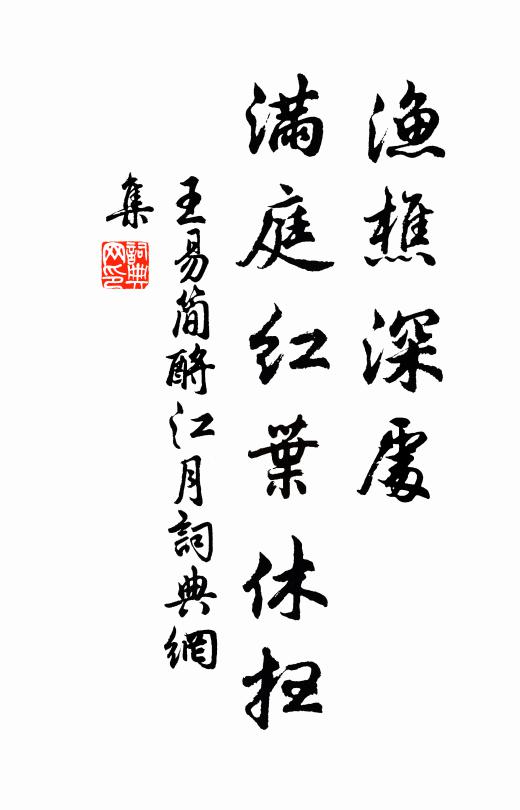 漁樵深處
滿庭紅葉休掃
王易簡酹江月詞典網
集
詞典
网印